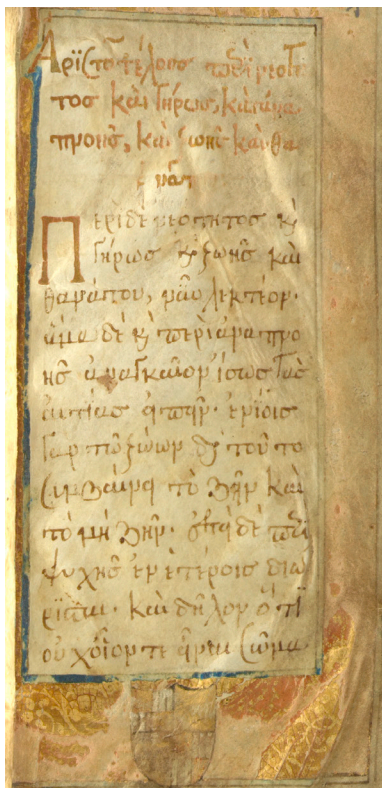 Ἀριστοτέλους περὶ νεότη
τος καὶ γήρως, καὶ ἀνα
πνοῆς, καὶ ζωῆς καὶ θα
νάτου
Περὶ δὲ νεότητος κὶ
γήρως κὶ ζωῆς καὶ
θανάτου, νῦν λεκτέον·
ἅμα δὲ κὶ περὶ ἀναπνο
ῆς ἀναγκαῖον ἴσως τὰς
αἰτίας εἰπεῖν· ἐνίοις
γὰρ τῶν ζώων διὰ τοῦτο
συμβαίνει τὸ ζῆν καὶ
τὸ μὴ ζῆν· ἐπεὶ δὲ περὶ
ψυχῆς ἐν ἑτέροις διώ
ρισται· καὶ δῆλον ὅτι
οὐχ οἷόν τε εἶναι σῶμα